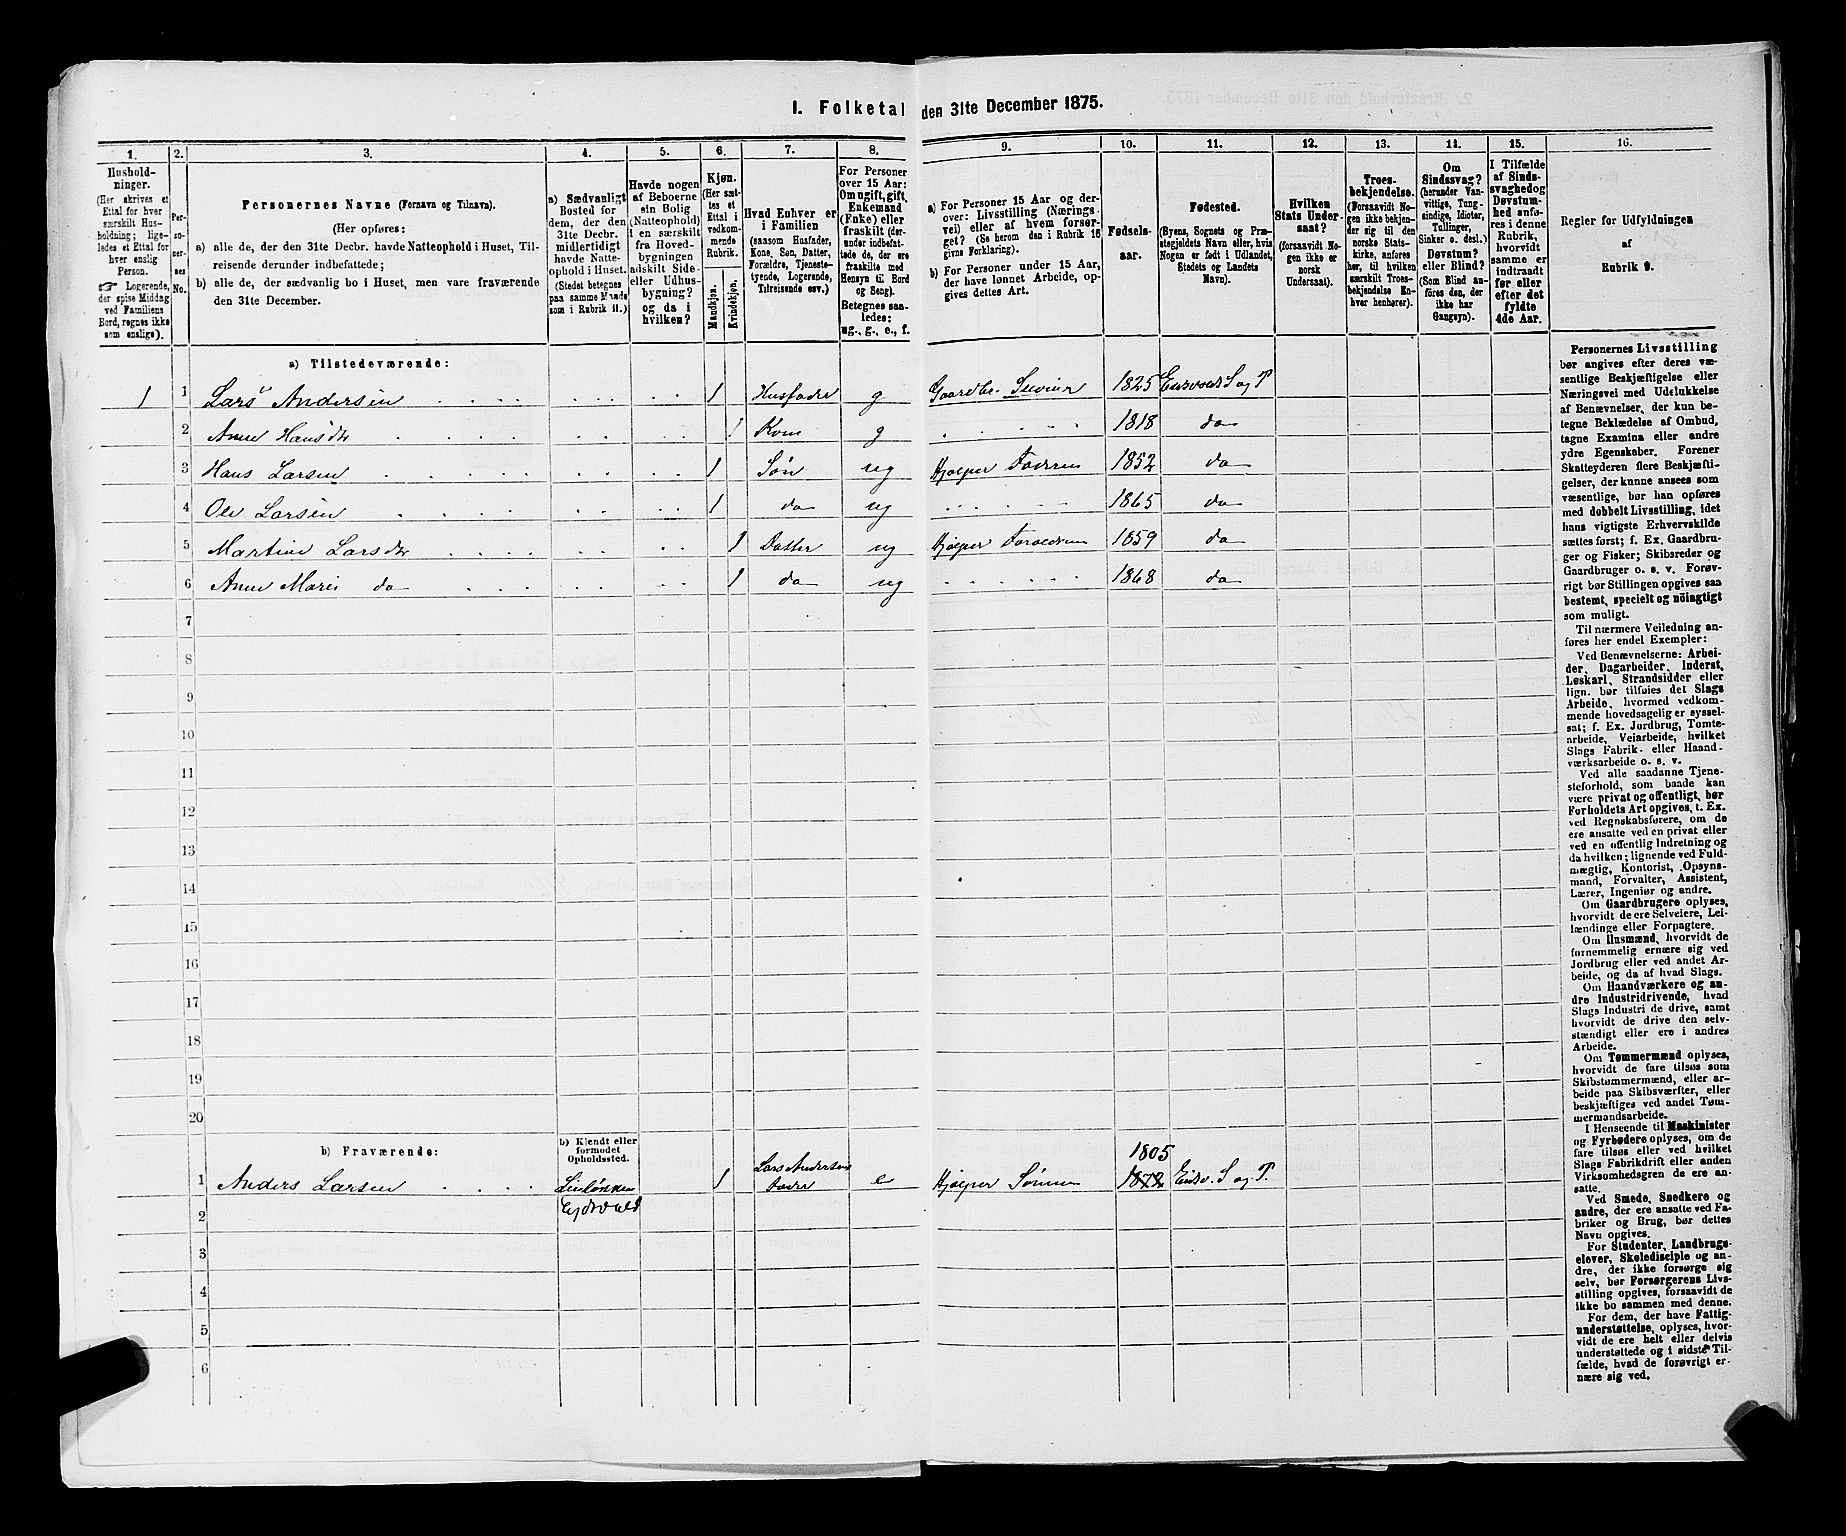 I. Folketal den 31te December 1875.
1.
2.
3.
4.
5.
6.
7.
8.
9.
10.
11.
12.
13.
14.
15.
16.
Hushold-
ninger.
(Her skrives et
Ettal for hver
særskilt Hus-
holdning; lige-
ledes et Ettal for
hver enslig
Person.
☞ Logerende,
der spise Middag
ved Familiens
Bord, regnes ikke
som enslige).
Per-
so-
ner-
nes
No.
Personernes Navne (Fornavn og Tilnavn).
(Her opføres:
a) alle de, der den 31te Decbr. havde Natteophold i Huset, Til-
reisende derunder indbefattede;
b) alle de, der sædvanlig bo i Huset, men vare fraværende
den 31te December.
a) Sædvanligt
Bosted for
dem, der den
31te Decbr.
midlertidigt
havde Natte-
ophold i Huset.
(Stedet betegnes
paa samme Maade
som i Rubrik 11.)
Havde nogen
af Beboerne
sin Bolig
(Natteophold)
i en særskilt
fra Hoved-
bygningen
adskilt Side-
eller Udhus-
bygning?
og da i
hvilken?
Kjøn.
(Her sæt-
tes et
Ettal i
vedkom-
mende
Rubrik.
Mandkjøn.
Kvindekjøn.
Hvad Enhver er
i Familien
(saasom Husfader,
Kone, Søn, Datter,
Forældre, Tjeneste-
tyende, Logerende,
Tilreisende osv.)
For Personer
over 15 Aar:
Om ugift, gift,
Enkemand
(Enke) eller
fraskilt (der-
under indbefat-
tede de, der ere
fraskilte med
Hensyn til Bord
og Seng).
Betegnes saa-
ledes:
ug., g., e., f.
a) For Personer 15 Aar og der-
over: Livsstilling (Nærings-
vei) eller af hvem forsør-
get? (Se herom den i Rubrik 16
givne Forklaring).
b) For Personer under 15 Aar,
der have lønnet Arbeide, op-
gives dettes Art.
Fødsels-
aar.
Fødested.
(Byens, Sognets og Præ-
stegjeldets Navn eller, hvis
Nogen er født i Udlandet,
Stedets og Landets
Navn).
Hvilken
Stats Under-
saat?
(forsaavidt No-
gen ikke er
norsk
Undersaat).
Troes-
bekjendelse.
(Forsaavidt No-
gen ikke bekjen-
der sig til den
norske Stats-
kirke, anføres
her, til hvilken
særskilt Troes-
bekjendelse En-
hver henhører).
Om
Sindssvag?
(herunder Van-
vittige, Tung-
sindige, Idioter,
Tullinger,
Sinker o. desl.)
Døvstum?
eller Blind?
(Som Blind an-
føres den, der
ikke har
Gangsyn).
I Tilfælde
af Sinds-
svaghed og
Døvstum-
hed anfø-
res i denne
Rubrik,
hvorvidt
samme er
indtraadt
før eller
efter det
fyldte
4de Aar.
Regler for Udfyldningen
af
Rubrik 9.
a) Tilstedeværende:
1 1 Lars Andersen 1 Husfader g Gaardbr. Selveier 1825 Eidsvold S og P
2 Anne Hansdtr 1 Kone g 1818 do
3 Hans Larsen 1 Søn ug Hjælper Faderen 1852 do
4 Ole Larsen 1 do ug 1865 do
5 Martine Larsdtr 1 Datter ug Hjælper Forældren 1859 do
6 Anne Marie do 1 do ug 1868 do
7
8
9
10
11
12
13
14
15
16
17
18
19
20
b) Fraværende:
b) Kjendt eller
formodet
Opholdssted.
1805
1 Anders Larsen 1 Lars Andersens
Fader e Hjælper Sønnen 1872 Eidsv. S og P.
2 Eydsvold
3
4
5
6
Personernes Livsstilling
bør angives efter deres væ-
sentlige Beskjæftigelse eller
Næringsvei med Udelukkelse
af Benævnelser, der kun be-
tegne Beklædelse af Ombud,
tagne Examina eller andre
ydre Egenskaber. Forener
Skatteyderen flere Beskjæfti-
gelser, der kunne ansees som
væsentlige, bør han opføres
med dobbelt Livsstilling, idet
hans vigtigste Erhvervskilde
sættes først; f. Ex. Gaardbru-
ger og Fisker; Skibsreder og
Gaardbruger o. s. v. Forøv-
rigt bør Stillingen opgives saa
bestemt, specielt og nøiagtigt
som muligt.
Til nærmere Veiledning an-
føres her endel Exempler:
Ved Benævnelserne: Arbei-
der, Dagarbeider, Inderst,
Løskarl, Strandsidder eller
lign. bør tilføies det Slags
Arbeide, hvormed vedkom-
mende hovedsagelig er syssel-
sat; f. Ex. Jordbrug, Tomte-
arbeide, Veiarbeide, hvilket
Slags Fabrik- eller Haand-
værksarbeide o. s. v.
Ved alle saadanne Tjene-
steforhold, som baade kan
være privat og offentligt, bør
Forholdets Art opgives, t. Ex.
ved Regnskabsførere, om de
ere ansatte ved en privat eller
ved en offentlig Indretning og
da hvilken; lignende ved Fuld-
mægtig, Kontorist, Opsyns-
mand, Forvalter, Assistent,
Lærer, Ingeniør og andre.
Om Gaardbrugere oplyses,
hvorvidt de ere Selveiere, Lei-
lændinge eller Forpagtere.
Om Husmænd, hvorvidt de
fornemmelig ernære sig ved
Jordbrug eller ved andet Ar-
beide, og da af hvad Slags.
Om Haandværkere og an-
dre Industridrivende, hvad
Slags Industri de drive, samt
hvorvidt de drive den selv-
stændigt eller ere i andres
Arbeide.
Om Tømmermænd oplyses,
hvorvidt de fare tilsøs som
Skibstømmermænd, eller ar-
beide paa Skibsværfter, eller
beskjæftiges ved andet Tøm-
mermandsarbeide.
I Henseende til Maskinister
og Fyrbødere oplyses, om de
fare tilsøs eller ved hvilket
Slags Fabrikdrift eller anden
Virksomhedsgren de ere an-
satte.
Ved Smede, Snedkere og
andre, der ere ansatte ved Fa-
briker og Brug, bør dettes
Navn opgives.
For Studenter, Landbrugs-
elever, Skoledisciple og an-
dre, der ikke forsørge sig
selv, bør Forsørgerens Livs-
stilling opgives, forsaavidt de
ikke bo sammen med denne.
For dem, der have Fattig-
understøttelse, oplyses, hvor-
vidt de ere helt eller delvis
understøttede og i sidste Til-
fælde, hvad de forøvrigt er-
nære sig ved.